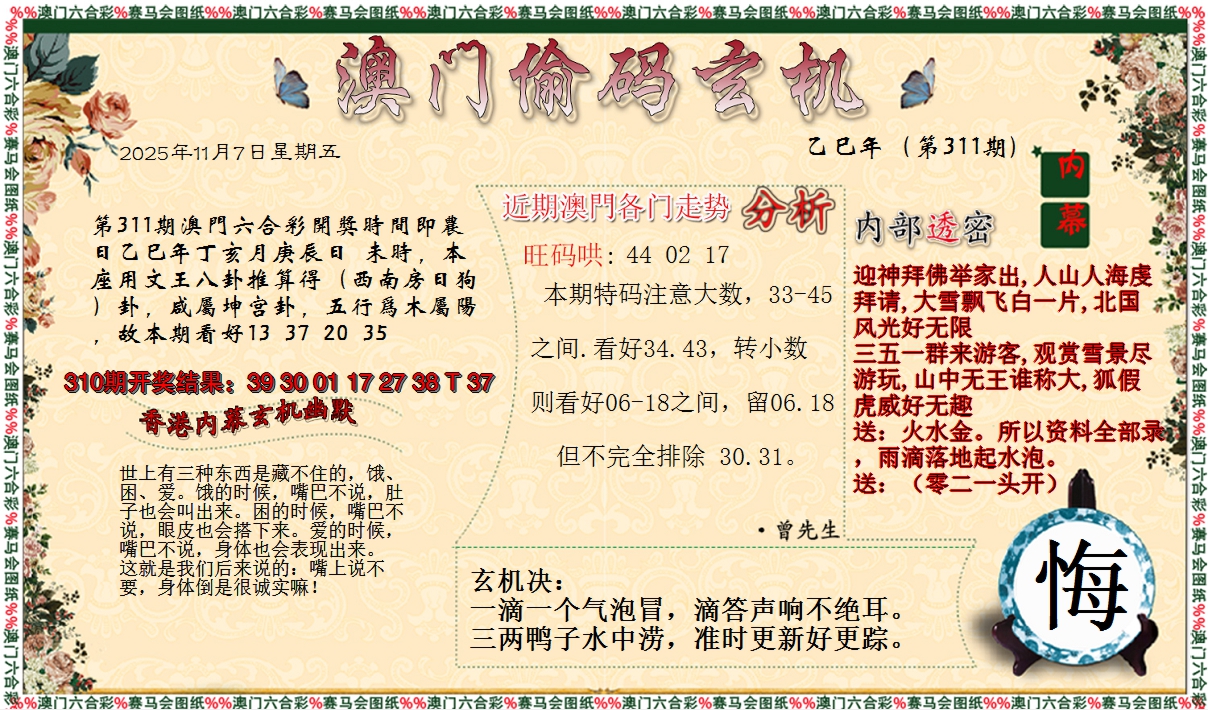 %%澳门六合彩%赛马会图纸%%澳门六合彩%赛马会图纸%%澳门六合彩%赛马会图纸%%澳门六合彩%赛马会图纸%%澳门六合彩%赛马会图纸%%澳门六合彩%赛马会图纸%%
澳门偷码玄机
2025年11月7日星期五
乙巳年（第311期）
第311期澳門六合彩開獎時間即農
日乙巳年丁亥月庚辰日 未時，本
座用文王八卦推算得（西南房日狗
）卦，咸屬坤宫卦，五行爲木屬陽
，故本期看好13 37 20 35
310期开奖结果：39 30 01 17 27 38 T 37
香港内幕玄机幽默
世上有三种东西是藏不住的，饿、
困、爱。饿的时候，嘴巴不说，肚
子也会叫出来。困的时候，嘴巴不
说，眼皮也会搭下来。爱的时候，
嘴巴不说，身体也会表现出来。
这就是我们后来说的：嘴上说不
要，身体倒是很诚实嘛！
近期澳門各门走势 分析
旺码哄: 44 02 17
本期特码注意大数，33-45
之间.看好34.43，转小数
则看好06-18之间，留06.18
但不完全排除 30.31。
·曾先生
内幕
内部透密
迎神拜佛举家出,人山人海虔
拜请,大雪飘飞白一片,北国
风光好无限
三五一群来游客,观赏雪景尽
游玩,山中无王谁称大,狐假
虎威好无趣
送：火水金。所以资料全部录
，雨滴落地起水泡。
送：（零二一头开）
玄机决：
一滴一个气泡冒，滴答声响不绝耳。
三两鸭子水中涝，准时更新好更踪。
悔
%%澳门六合彩%赛马会图纸%%澳门六合彩%赛马会图纸%%澳门六合彩%赛马会图纸%%澳门六合彩%赛马会图纸%%澳门六合彩%赛马会图纸%%澳门六合彩%赛马会图纸%%
%%澳门六合彩%赛马会图纸%%澳门六合彩%赛马会图纸%%澳门六合彩%赛马会图纸%%澳门六合彩
%%澳门六合彩%赛马会图纸%%澳门六合彩%赛马会图纸%%澳门六合彩%赛马会图纸%%澳门六合彩%